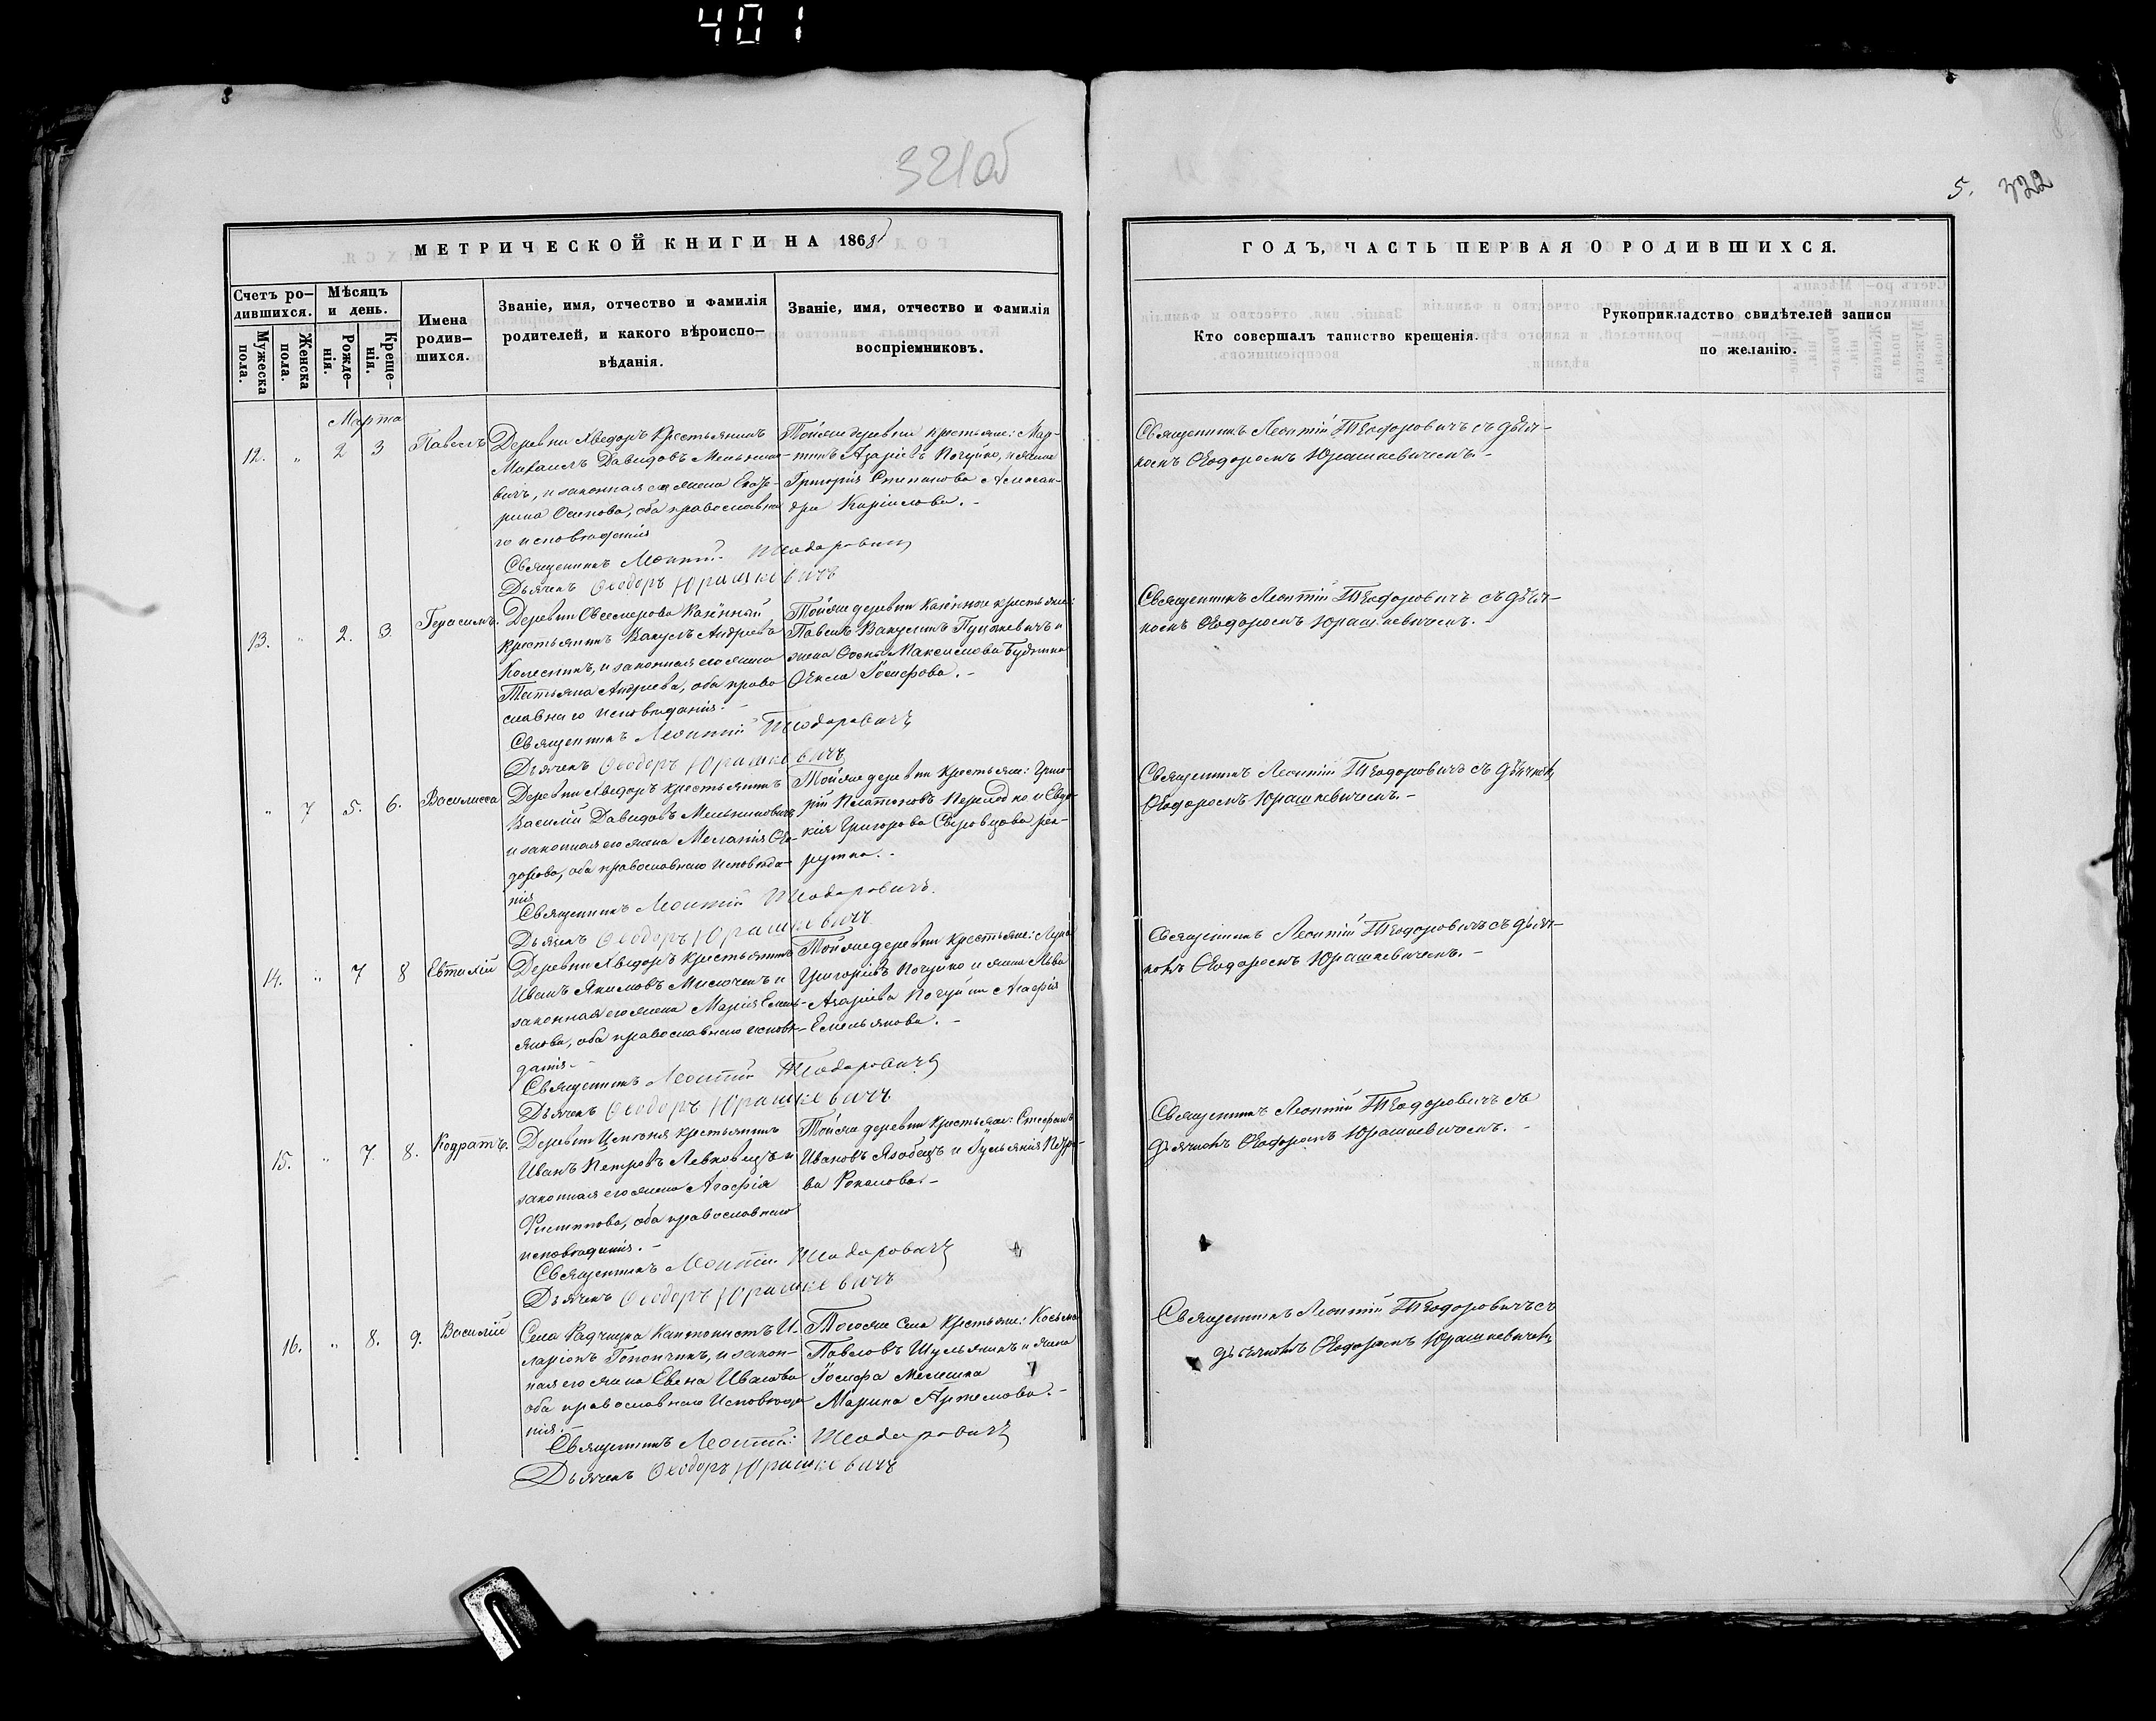 401
321об
5. 322
МЕТРИЧЕСКОЙ КНИГИ НА 1868
ГОДЪ, ЧАСТЬ ПЕРВАЯ О РОДИВШИХСЯ.
Счетъ ро-
дившихся.
Мужеска
пола.
Женска
пола.
Мѣсяцъ
и день.
Рожде-
нія.
Креще-
нія.
Имена
родив-
шихся.
Званіе, имя, отчество и фамилія
родителей, и какого вѣроиспо-
вѣданія.
Званіе, имя, отчество и фамилія
воспріемниковъ.
Кто совершалъ таинство крещенія.
Рукоприкладство свидѣтелей записи
по желанію.
Марта
12. „ 2 3 Павелъ
Деревни Хведоръ Крестьянинъ
Михаилъ Давидовъ Мельнико-
вичъ, и законная его жена Екате-
рина Осипова, оба православна
го исповѣданія
Священникъ Леонтій Теодоровичъ
Дьячекъ Ѳеодоръ Юрашкевичъ
Тойже деревни крестьяне: Мар-
тинъ Азаріевъ Почуйко, и жена
Григорія Степанова Алексан-
дра Каріилова. -
Священникъ Леонтій Теодоровичъ съ дьяч-
комъ Ѳеодоромъ Юрашкевичемъ. -
13. „ 2. 3 Герасимъ.
Деревни Казённый
крестьянинъ Вакулъ Андреевъ
Колесникъ, и законная его жена
Татьяна Андреева, оба право
славнаго исповѣданія. -
Священникъ Леонтій Теодоровичъ
Дьячекъ Ѳеодоръ Юрашкевичъ
Тойже деревни Казённые крестьяне:
Павелъ Вакулинъ и
жена Максимова
Ѳекла Іосифова. -
Священникъ Леонтій Теодоровичъ съ дьяч-
комъ Ѳеодоромъ Юрашкевичемъ. -
„ 7 5. 6. Василисса
Деревни Хведоръ крестьянинъ
Василій Давидовъ Мельниковичъ
и законная его жена Меланія Ѳео-
дорова, оба православнаго исповѣда-
нія
Священникъ Леонтій Теодоровичъ.
Дьячекъ Ѳеодоръ Юрашкевичъ
Тойже деревни Крестьяне: Григо-
рій Платоновъ и Евдо-
кія Григорова рек-
рутка. -
Священникъ Леонтій Теодоровичъ съ дьячкомъ
Ѳеодоромъ Юрашкевичемъ. -
14. „ 7 8 Евтихій
Деревни Хведоръ крестьянинъ
Иванъ Якимовъ и
законная его жена Марія Емель-
янова, оба православнаго исповѣ-
данія -
Священникъ Леонтій Теодоровичъ
Дьячекъ Ѳеодоръ Юрашкевичъ
Тойже деревни Крестьяне: Лука
Григоріевъ Почуйко и жена Льва
Азаріева Агафія
Емельянова. -
Священникъ Леонтій Теодоровичъ съ дьяч-
комъ Ѳеодоромъ Юрашкевичемъ. -
15. „ 7. 8. Кодратъ.
Деревни крестьянинъ
Иванъ Петровъ Левковецъ и
законная его жена Агафія
Филипова, оба православнаго
исповѣданія. -
Священникъ Леонтій Теодоровичъ
Дьячекъ Ѳеодоръ Юрашкевичъ
Тойже деревни Крестьяне: Стефанъ
Ивановъ и Іульянія Петро-
ва
Священникъ Леонтій Теодоровичъ съ
дьячкомъ Ѳеодоромъ Юрашкевичемъ. -
16. „ 8. 9. Василій
Села Радчицка Кантонистъ И-
ларіонъ Гопончикъ, и закон-
ная его жена Евва Иванова
оба православнаго исповѣда
нія.
Священникъ Леонтій Теодоровичъ
Дьячекъ Ѳеодоръ Юрашкевичъ
Тогоже Села Крестьяне: Косьма
Павловъ Шульжикъ и жена
Іосифа Мелешка
Марина Артемова. -
Священникъ Леонтій Теодоровичъ съ
дьячкомъ Ѳеодоромъ Юрашкевичемъ